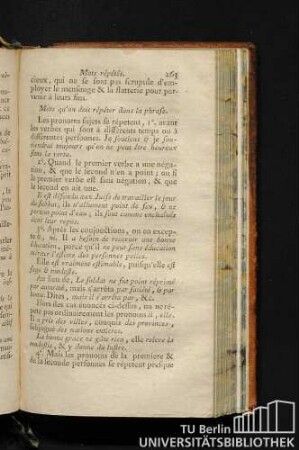 Mots répétés. 265
cieux, qui ne se font pas scrupule d'em-
ployer le mensonge & la flatterie pour par-
venir à leurs fins.
Mots qu'on doit répéter dans la phrase.
Les pronoms sujets se répetent, 1°. avant
les verbes qui sont à différents temps ou à
différentes personnes. Je soutiens & je sou-
tiendrai toujours qu'on ne peut être heureux
sans la vertu.
2°. Quand le premier verbe a une néga-
tion, & que le second n'en a point; ou si
le premier verbe est sans négation, & que
le second en ait une.
Il est défendu aux Juifs de travailler le jour
de sabbat; ils n'allument point de feu, & ne
portent point d'eau; ils sont comme enchaînés
dans leur repos.
3°. Après les conjonctions, on en excepte
&, ni. Il a besoin de recevoir une bonne
éducation, parce qu'il ne peut sans éducation
mériter l'estime des personnes polies.
Elle est vraiment estimable, puisqu'elle est
sage & modeste.
Au lieu de, Le soldat ne fut point réprimé
par autorité, mais s'arrêta par satiété, & par
honte. Dites, mais il s'arrêta par, &c.
Hors des cas énoncés ci-dessus, on ne ré-
pete pas ordinairement les pronoms il, elle.
Il a pris des villes, conquis des provinces,
subjugué des nations entieres.
La bonne grace ne gâte rien, elle releve la
modestie, & y donne du lustre.
4°. Mais les pronoms de la premiere &
de la seconde personnes se répetent presque
TU Berlin
UNIVERSITÄTSBIBLIOTHEK